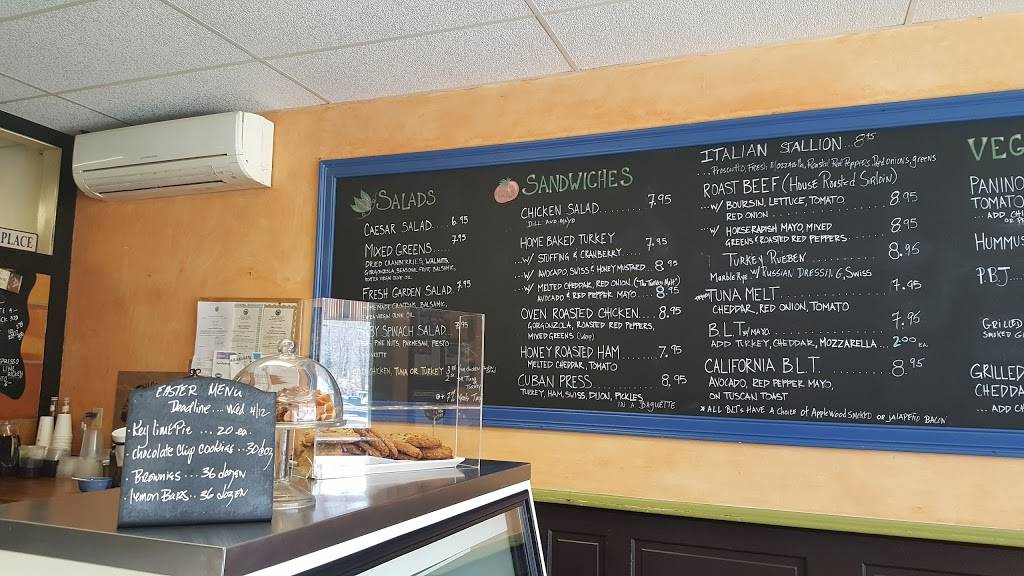 PLACE
EASTER MENU
Deadline... Wed 4/12
. Key lime Pie ... 20 ea.
. chocolate chip cookies ... 30 doz
. Brownies .... 36 dozen
. lemon Bars .. 36 dozen
SALADS
CAESAR SALAD 6.95
MIXED GREENS 7.95
DRIED CRANBERRIES, WALNUTS,
GORGONZOLA, SEASONAL FRUIT, BALSAMIC,
EXTRA VIRGIN OLIVE OIL
FRESH GARDEN SALAD 7.95
BALSAMIC,
VIRGIN OLIVE OIL
BY SPINACH SALAD 7.95
PINE NUTS, PARMESAN, PESTO
CHICKEN, TUNA OR TURKEY
SANDWICHES
CHICKEN SALAD 7.95
DILL AND MAYO
HOME BAKED TURKEY 7.95
w/ STUFFING & CRANBERRY
w/ AVOCADO, SWISS & HONEY MUSTARD... 8.95
w/ MELTED CHEDDAR, RED ONION, (The Turkey Melt)
AVOCADO & RED PEPPER MAYO 8.95
OVEN ROASTED CHICKEN 8.95
GORGONZOLA, ROASTED RED PEPPERS,
MIXED GREENS (Wrap)
HONEY ROASTED HAM 7.95
MELTED CHEDDAR, TOMATO
CUBAN PRESS 8.95
TURKEY, HAM, SWISS, DIJON, PICKLES
ON A BAGUETTE
ITALIAN STALLION 8.95
... Prosciutto, Fresh Mozzarella, Roasted Red Peppers, Red onions, greens
ROAST BEEF (House Roasted Sirloin)
... w/ BOURSIN, LETTUCE, TOMATO, 8.95
RED ONION
... w/ HORSERADISH MAYO, MIXED 8.95
GREENS & ROASTED RED PEPPERS
TURKEY RUEBEN 8.95
Marble Rye w/ RUSSIAN DRESSING, Swiss
TUNA MELT 7.95
CHEDDAR, RED ONION, TOMATO
B.L.T w/ MAYO 7.95
ADD TURKEY, CHEDDAR, MOZZARELLA... 2.00 ea.
CALIFORNIA B.L.T 8.95
AVOCADO, RED PEPPER MAYO,
ON TUSCAN TOAST
* ALL BLT's HAVE A CHOICE OF APPLEWOOD SMOKED OR JALAPEÑO BACON
VEG
PANINO
TOMATO
... ADD
HUMMUS
P.B.J
GRILLED
SMOKED G
GRILLED
CHEDDA
... ADD